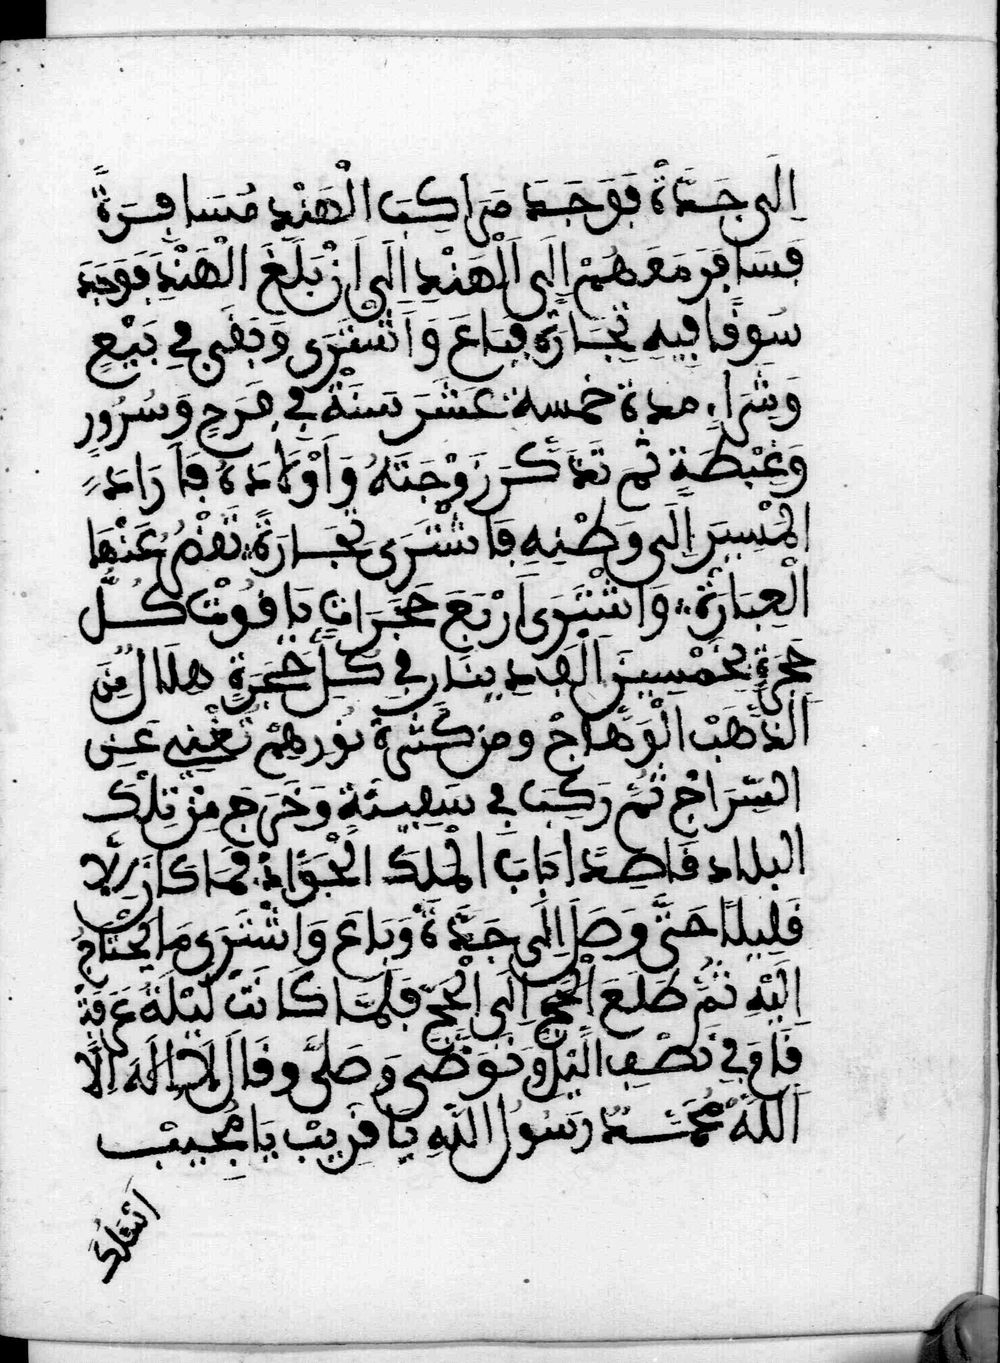 اِلَى جَدَّةً فَوَجَدَ مَرَاكِبَ الْهَنْدِ مُسَافِرَةً
فَسَافَرَ مَعَهُمْ اِلَى الْهَنْدِ اِلَى اَنْ بَلَغَ الْهَنْدَ فَوَجَدَ
سُوقًا فِيهِ تِجَارَةٌ فَبَاعَ وَاَشْتَرَى وَبَقَى فِي بَيْعٍ
وَشِرَاءٍ مدة خمسة عَشَرَ سَنَةً فِي فَرَحٍ وَسُرُورٍ
وَغِبْطَةٍ ثم تَذَكَّرَ زَوْجَتَهُ وَاَوْلَادَهُ فَاَرَادَ
الْمَسِيرَ اِلَى وَطْنِهِ فَاشْتَرَى تِجَارَةً تَقْصُرُ عَنْهَا
الْعِبَارَةُ وَاشْتَرَى اَرْبَعَ حَجَرَاتٍ يَاقُوتٍ كُلُّ
حَجَرَةٍ بِخَمْسِينَ اَلْفِ دِينَارٍ فِي كُلِّ حَجَرَةٍ هِلَالٌ مِّنَ
الذَّهَبْ الْوَهَّاجْ ومن كَثْرَةِ نُورِهِمْ تُغْنِي عَنِ
السِّرَاجْ ثُمَّ رَكِبَ فِي سَفِينَةٍ وَخَرَجَ مِنْ تِلْكَ
البلَاد قَاصِدًا بَابَ الْمَلِكِ الْجَوَّادْ فَمَا كَانَ إلَّا
قَلِيلًا حَتَّى وَصَلَ اِلَى جَدَّةً وَبَاعَ وَاشْتَرَى مَا يَحْتَاجُ
اِلَيْهِ ثُمَّ طَلَعَ الْحَجُّ اِلَى الْحَجِّ فَلَمَّا كَانَتْ لَيْلَةُ عَرَفَةَ
قَامَ فِي نِصْفِ الَّيْلِ وَتَوَضَّى وَصَلَّى وقَالَ لَا اِلَهَ اِلَّا
اللَّهُ مُحَمَّدٌ رَسُولُ اللَّهِ يَا قَرِيبْ يَا مُجِيبْ
اَسْئَلُكَ